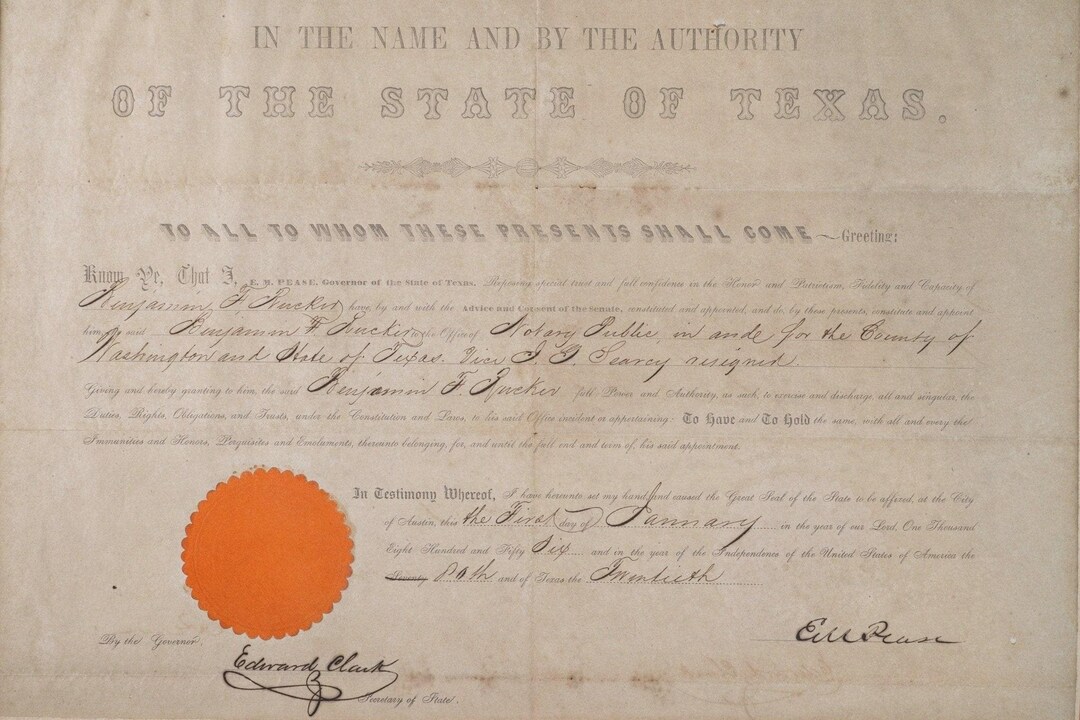 IN THE NAME AND BY THE AUTHORITY
OF THE STATE OF TEXAS.
TO ALL TO WHOM THESE PRESENTS SHALL COME—Greeting:
Know Ye, That I, E. M. PEASE, Governor of the State of Texas, Reposing special trust and full confidence in the Honor and Patriotism, Fidelity and Capacity of
Benjamin F Rucker have, by and with the Advice and Consent of the Senate, constituted and appointed, and do, by these presents, constitute and appoint
him, the said Benjamin F Rucker to the Office of Notary Public in and for the County of
Washington and State of Texas. Vice J. G. Searcy resigned.
Giving and hereby granting to him, the said Benjamin F. Rucker full Power and Authority, as such, to exercise and discharge all and singular, the
Duties, Rights, Obligations, and Trusts, under the Constitution and Laws, to his said Office incident or appertaining. To Have and To Hold the same, with all and every the
Immunities and Honors, Perquisites and Emoluments, thereunto belonging, for, and until the full end and term of, his said appointment.
In Testimony Whereof, I have hereunto set my hand, and caused the Great Seal of the State to be affixed, at the City
of Austin, this the First day of January in the year of our Lord, One Thousand
Eight Hundred and Fifty Six and in the year of the Independence of the United States of America the
80th and of Texas the Twentieth
E M Pease
By the Governor.
Edward Clark
Secretary of State.